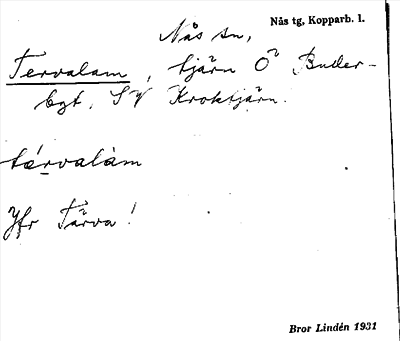 Nås sn,
Nås tg, Kopparb. l.
Tervalam, tjärn Ö Buder-
bgt, SV Kroktjärn.
tǽrvalàm
Jfr Tärva!
Bror Lindén 1931